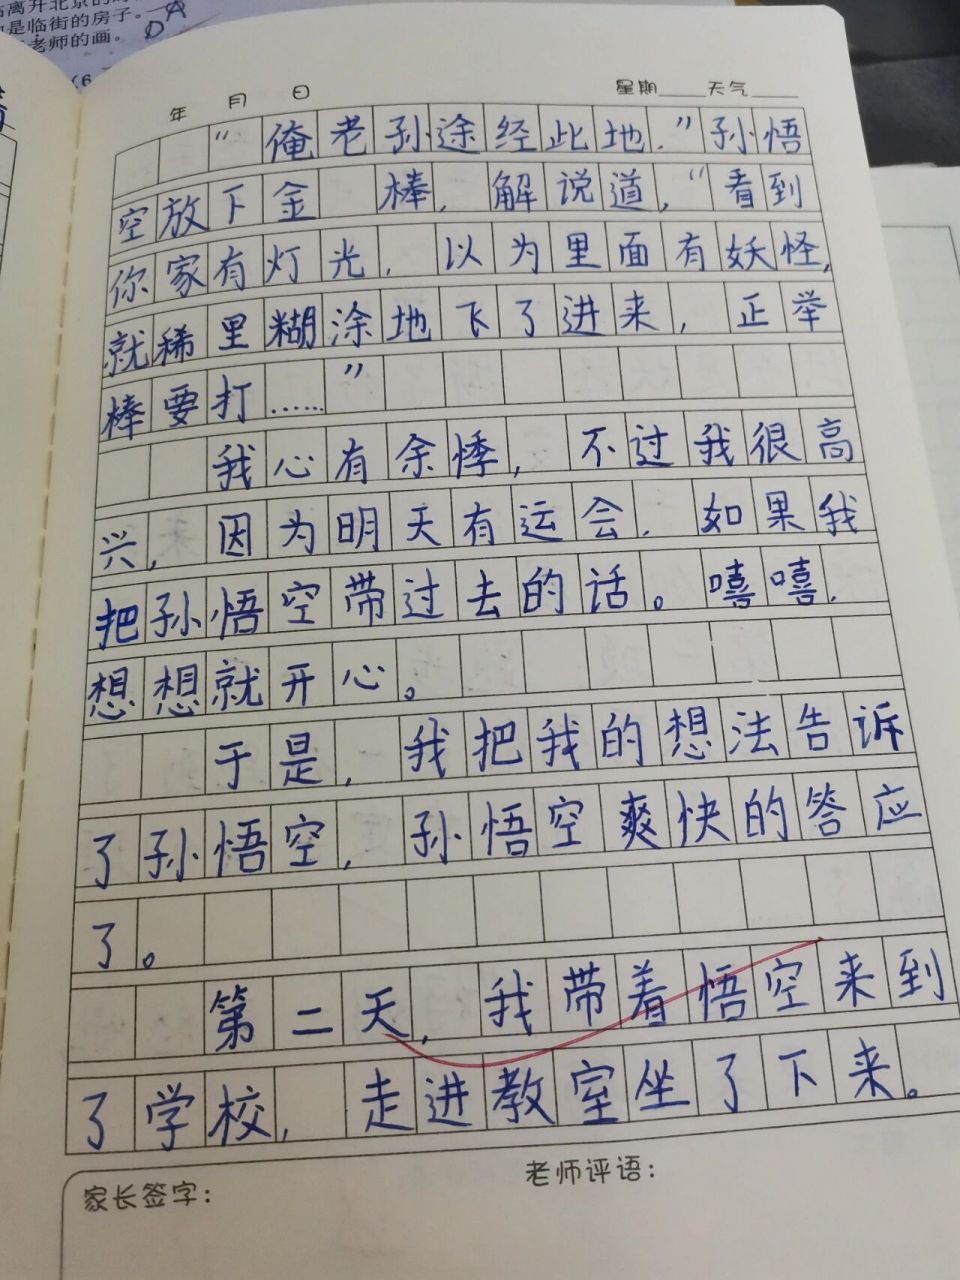 离开北京的
是临街的房子。
老师的画。
DA
(6
年 月 日 星期____天气____
“俺老孙途经此地.”孙悟
空放下金 棒,解说道,“看到
你家有灯光,以为里面有妖怪,
就稀里糊涂地飞了进来,正举
棒要打……”
我心有余悸,不过我很高
兴,因为明天有运会,如果我
把孙悟空带过去的话。嘻嘻,
想想就开心。
于是,我把我的想法告诉
了孙悟空,孙悟空爽快的答应
了。
第二天,我带着悟空来到
了学校,走进教室坐了下来。
家长签字: 老师评语: